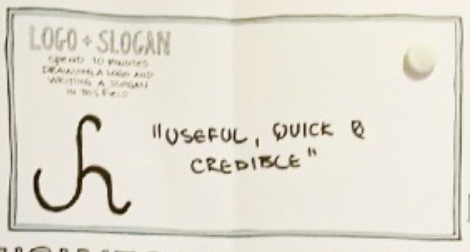 LOGO + SLOGAN
SPEND 10 MINUTES
DRAWING A LOGO AND
WRITING A SLOGAN
IN THIS FIELD
"USEFUL, QUICK &
CREDIBLE"